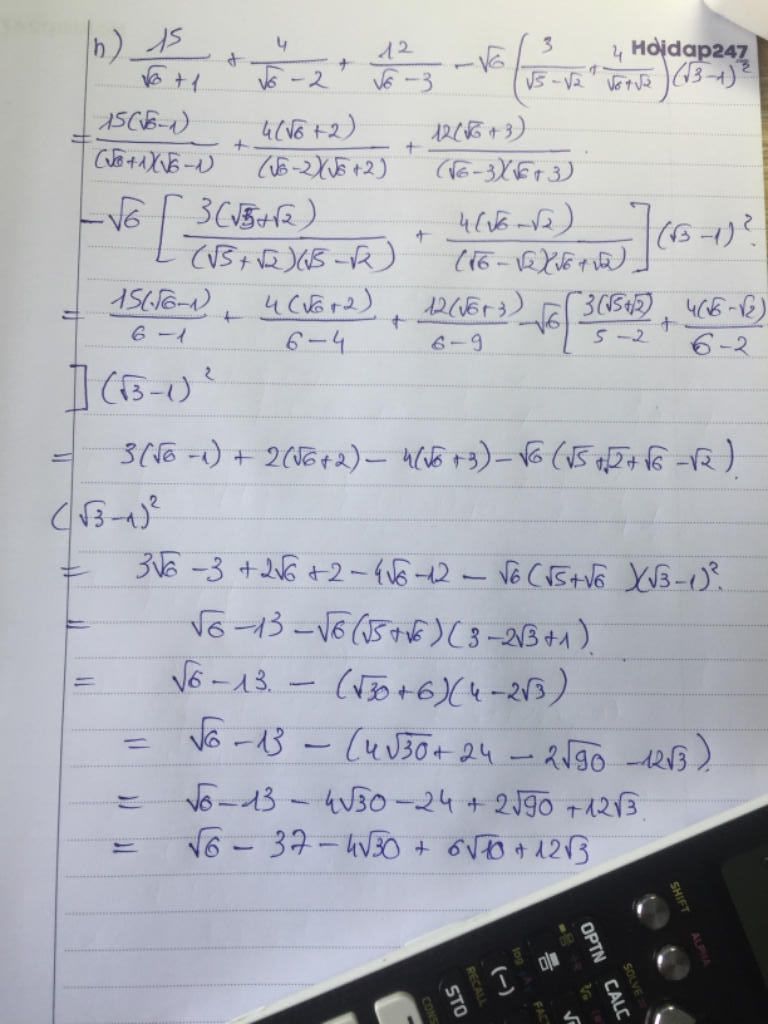 Hoidap247
h) 15/(√6+1) + 4/(√6-2) + 12/(√6-3) - √6 (3/(√5-√2) + 4/(√6+√2)) (√3-1)²
= 15(√6-1)/((√6+1)(√6-1)) + 4(√6+2)/((√6-2)(√6+2)) + 12(√6+3)/((√6-3)(√6+3)).
-√6 [3(√5+√2)/((√5+√2)(√5-√2)) + 4(√6-√2)/((√6-√2)(√6+√2))] (√3-1)².
= 15(√6-1)/(6-1) + 4(√6+2)/(6-4) + 12(√6+3)/(6-9) - √6 [3(√5+√2)/(5-2) + 4(√6-√2)/(6-2)
] (√3-1)²
= 3(√6-1) + 2(√6+2) - 4(√6+3) - √6 (√5+√2+√6-√2).
(√3-1)²
= 3√6-3+2√6+2-4√6-12 - √6(√5+√6)(√3-1)².
= √6-13-√6(√5+√6)(3-2√3+1).
= √6-13. - (√30+6)(4-2√3)
= √6-13 - (4√30+24 - 2√90 -12√3).
= √6-13-4√30-24+2√90+12√3.
= √6-37-4√30+6√10+12√3
SHIFT
ALPHA
OPTN
CALC
SOLVE=
(-)
log
RECALL
STO
FACT
CONS